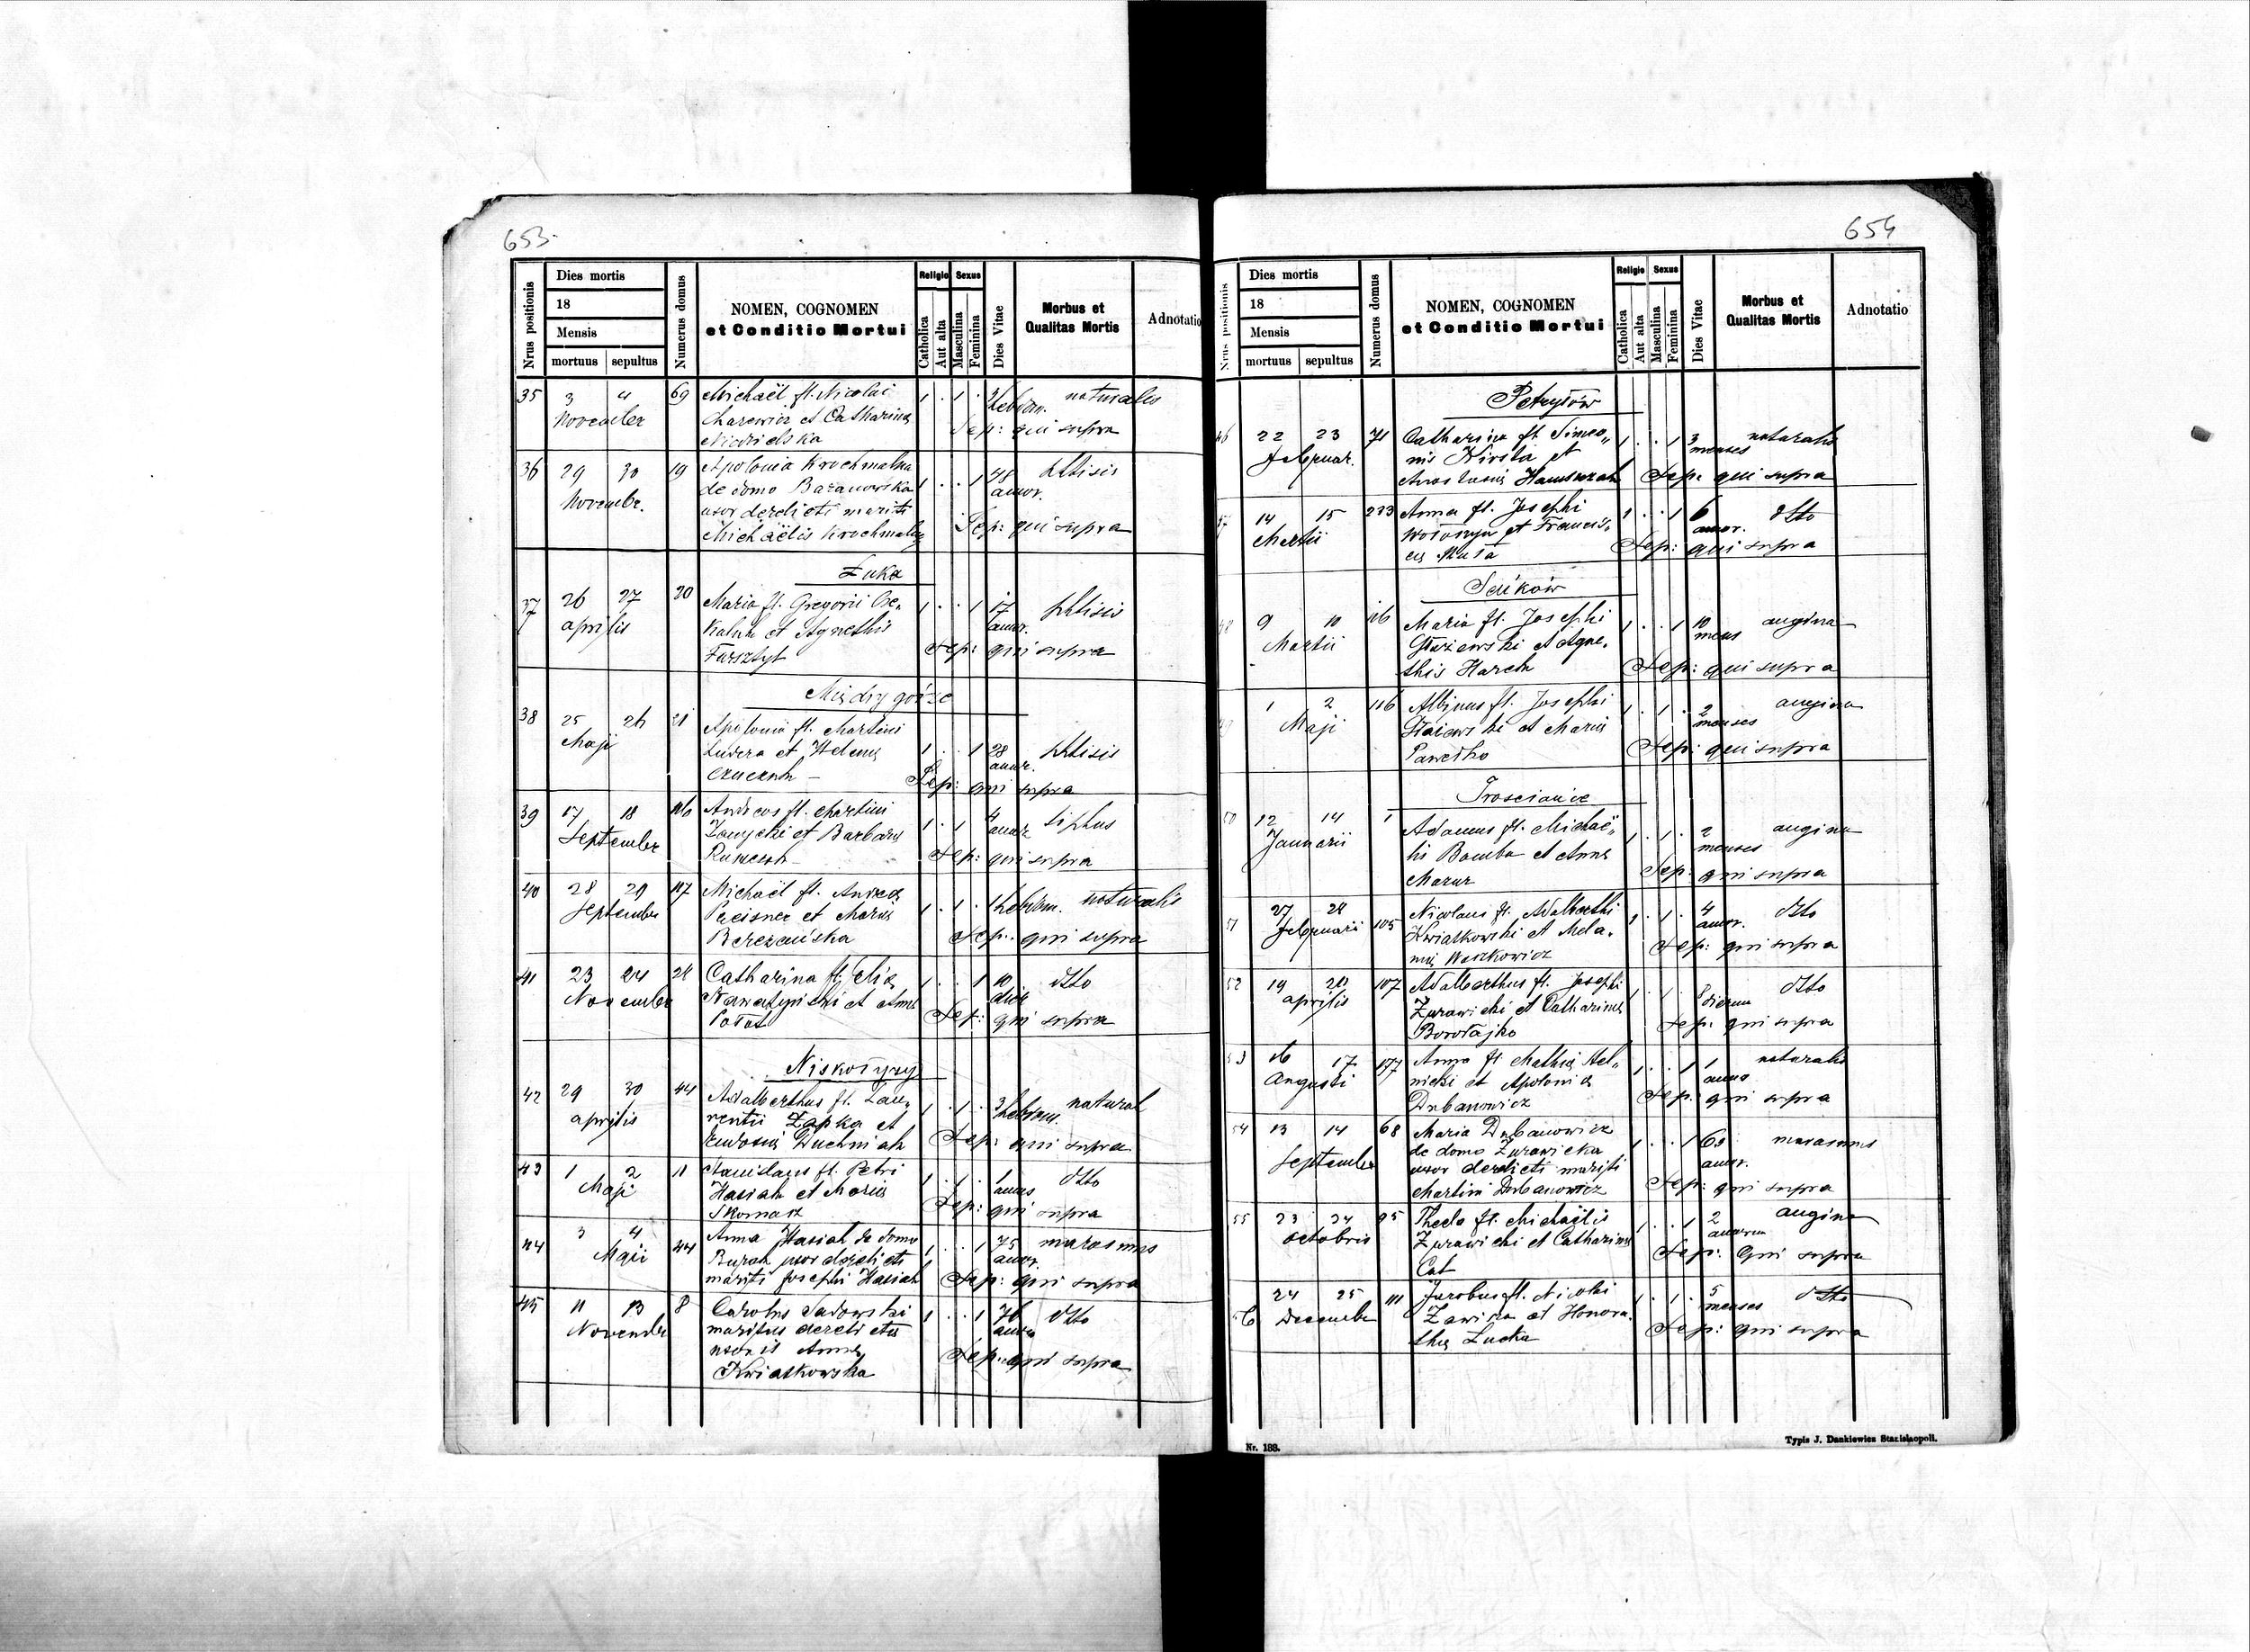 653.
Nrus positionis
Dies mortis
18
Mensis
mortuus sepultus
Numerus domus
NOMEN, COGNOMEN
et Conditio Mortui
Religio
Catholica
Aut alta
Sexus
Masculina
Feminina
Dies Vitae
Morbus et
Qualitas Mortis
Adnotatio
35 3 4 69 Michaël fl. Nicolai 1 . 1 . naturalis
November et Catharina hebdm.
Sep: qui supra
36 29 30 19 Apolonia Krochmalna 1 . . 1 48 phtisis
Novembr. de domo Baranowska annor.
uxor derelicti mariti
Michaëlis Krochmalny Sep: qui supra
Łuka
37 26 27 20 Maria fl. Gregorii 1 . . 1 17 phtisis
aprilis et Agnethis annor.
Farsztyt Sep: qui supra
Międzygórze
38 25 26 21 Apolonia fl. Martini
Maji Ludera et Helena 1 . . 1 28 phtisis
annor.
Sep: qui supra
39 17 18 Andreas fl. Martini 1 . 1 . 4 tiphus
September et Barbara annor
Sep: qui supra
40 28 29 107 Michaël fl. Andrea 1 . 1 . 1 hebdm. naturalis
September et Maria
Sep: qui supra
41 23 24 28 Catharina fl. Elia 1 . . 1 10 dtto
November et Anna
Sep: qui supra
Niskołyzy
42 29 30 44 Adalberthus fl. Lau-
aprilis rentii Zapka et 1 . 1 . 3 hebdm. natural
Duchniak Sep: qui supra
43 1 2 11 Stanislaus fl. Petri 1 . 1 . 1 dtto
Maji Hasiak et Maria annus
Skomasz Sep: qui supra
44 3 4 44 Anna Hasiak de domo 1 . . 1 75 marasmus
Maji Burak uxor derelicti annor.
mariti Josephi Hasiak Sep: qui supra
45 11 13 8 Carolus Sadowski 1 . . 1 76 dtto
November maritus derelictus
uxoris Anna Sep: qui supra
Kwiatkowska
654
Nrus positionis
Dies mortis
18
Mensis
mortuus sepultus
Numerus domus
NOMEN, COGNOMEN
et Conditio Mortui
Religio
Catholica
Aut alta
Sexus
Masculina
Feminina
Dies Vitae
Morbus et
Qualitas Mortis
Adnotatio
Petryłów
46 22 23 71 Catharina fl. Simeo- 1 . . 1 3 naturalis
Februar. nis Kirsta et menses
Sep: qui supra
14 15 223 Anna fl. Josephi 1 . . 1 6 dtto
Martii Wołoszyn et Francis- annor.
Sep: qui supra
9 10 116 Maria fl. Josephi 1 . . 1 10 angina
Martii et Agne- mens
this Sep: qui supra
1 2 116 Albinus fl. Josephi 1 . 1 . 2 angina
Maji et Maria menses
Pawełko Sep: qui supra
Trościanie
50 12 14 1 Adamus fl. Michaë- 1 . 1 . 2 angina
Januarii lis Bamba et Anna menses
Mazur Sep: qui supra
51 27 28 105 Nicolaus fl. Adalberthi 1 . 1 . 4 dtto
Februarii Kwiatkowski et Mela- annor.
nia Waszkowicz Sep: qui supra
52 19 20 107 Adalberthus fl. Josephi 1 . 1 . 8 dierum dtto
aprilis Żurawicki et Catharina
Borołajko Sep: qui supra
53 16 17 177 Anna fl. Mathia 1 . . 1 1 naturalis
Augusti et Apolonia anno
Dubanowicz Sep: qui supra
54 13 14 68 Maria Dubanowicz 1 . . 1 marasmus
September de domo Żurawicka annor.
uxor derelicti mariti
Martini Dubanowicz Sep: qui supra
55 23 24 95 Thecla fl. Michaëlis 1 . . 1 2 angina
octobris Żurawicki et Catharina annorum
Cat Sep: qui supra
56 24 25 111 Jacobus fl. Nicolai 1 . 1 . 5 dtto
December et Honora- menses
tha Sep: qui supra
Nr. 188.
Typis J. Dankiewicz Stanislaopoli.